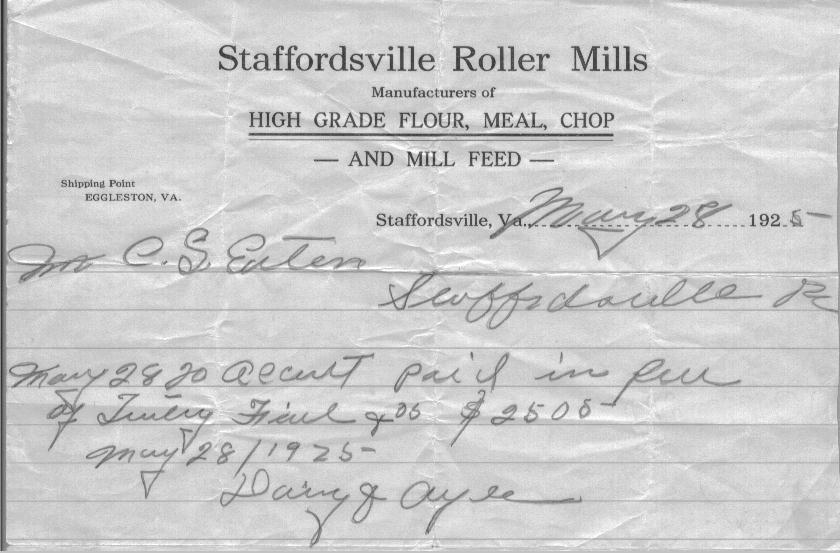 Staffordsville Roller Mills
Manufacturers of
HIGH GRADE FLOUR, MEAL, CHOP
— AND MILL FEED —
Shipping Point
EGGLESTON, VA.
Staffordsville, Va., May 28 1925
Mr C. S. Eaten
Staffordsville
May 28 to accunt paid in full
of Twenty Five & 05 $ 2505
May 28/1925